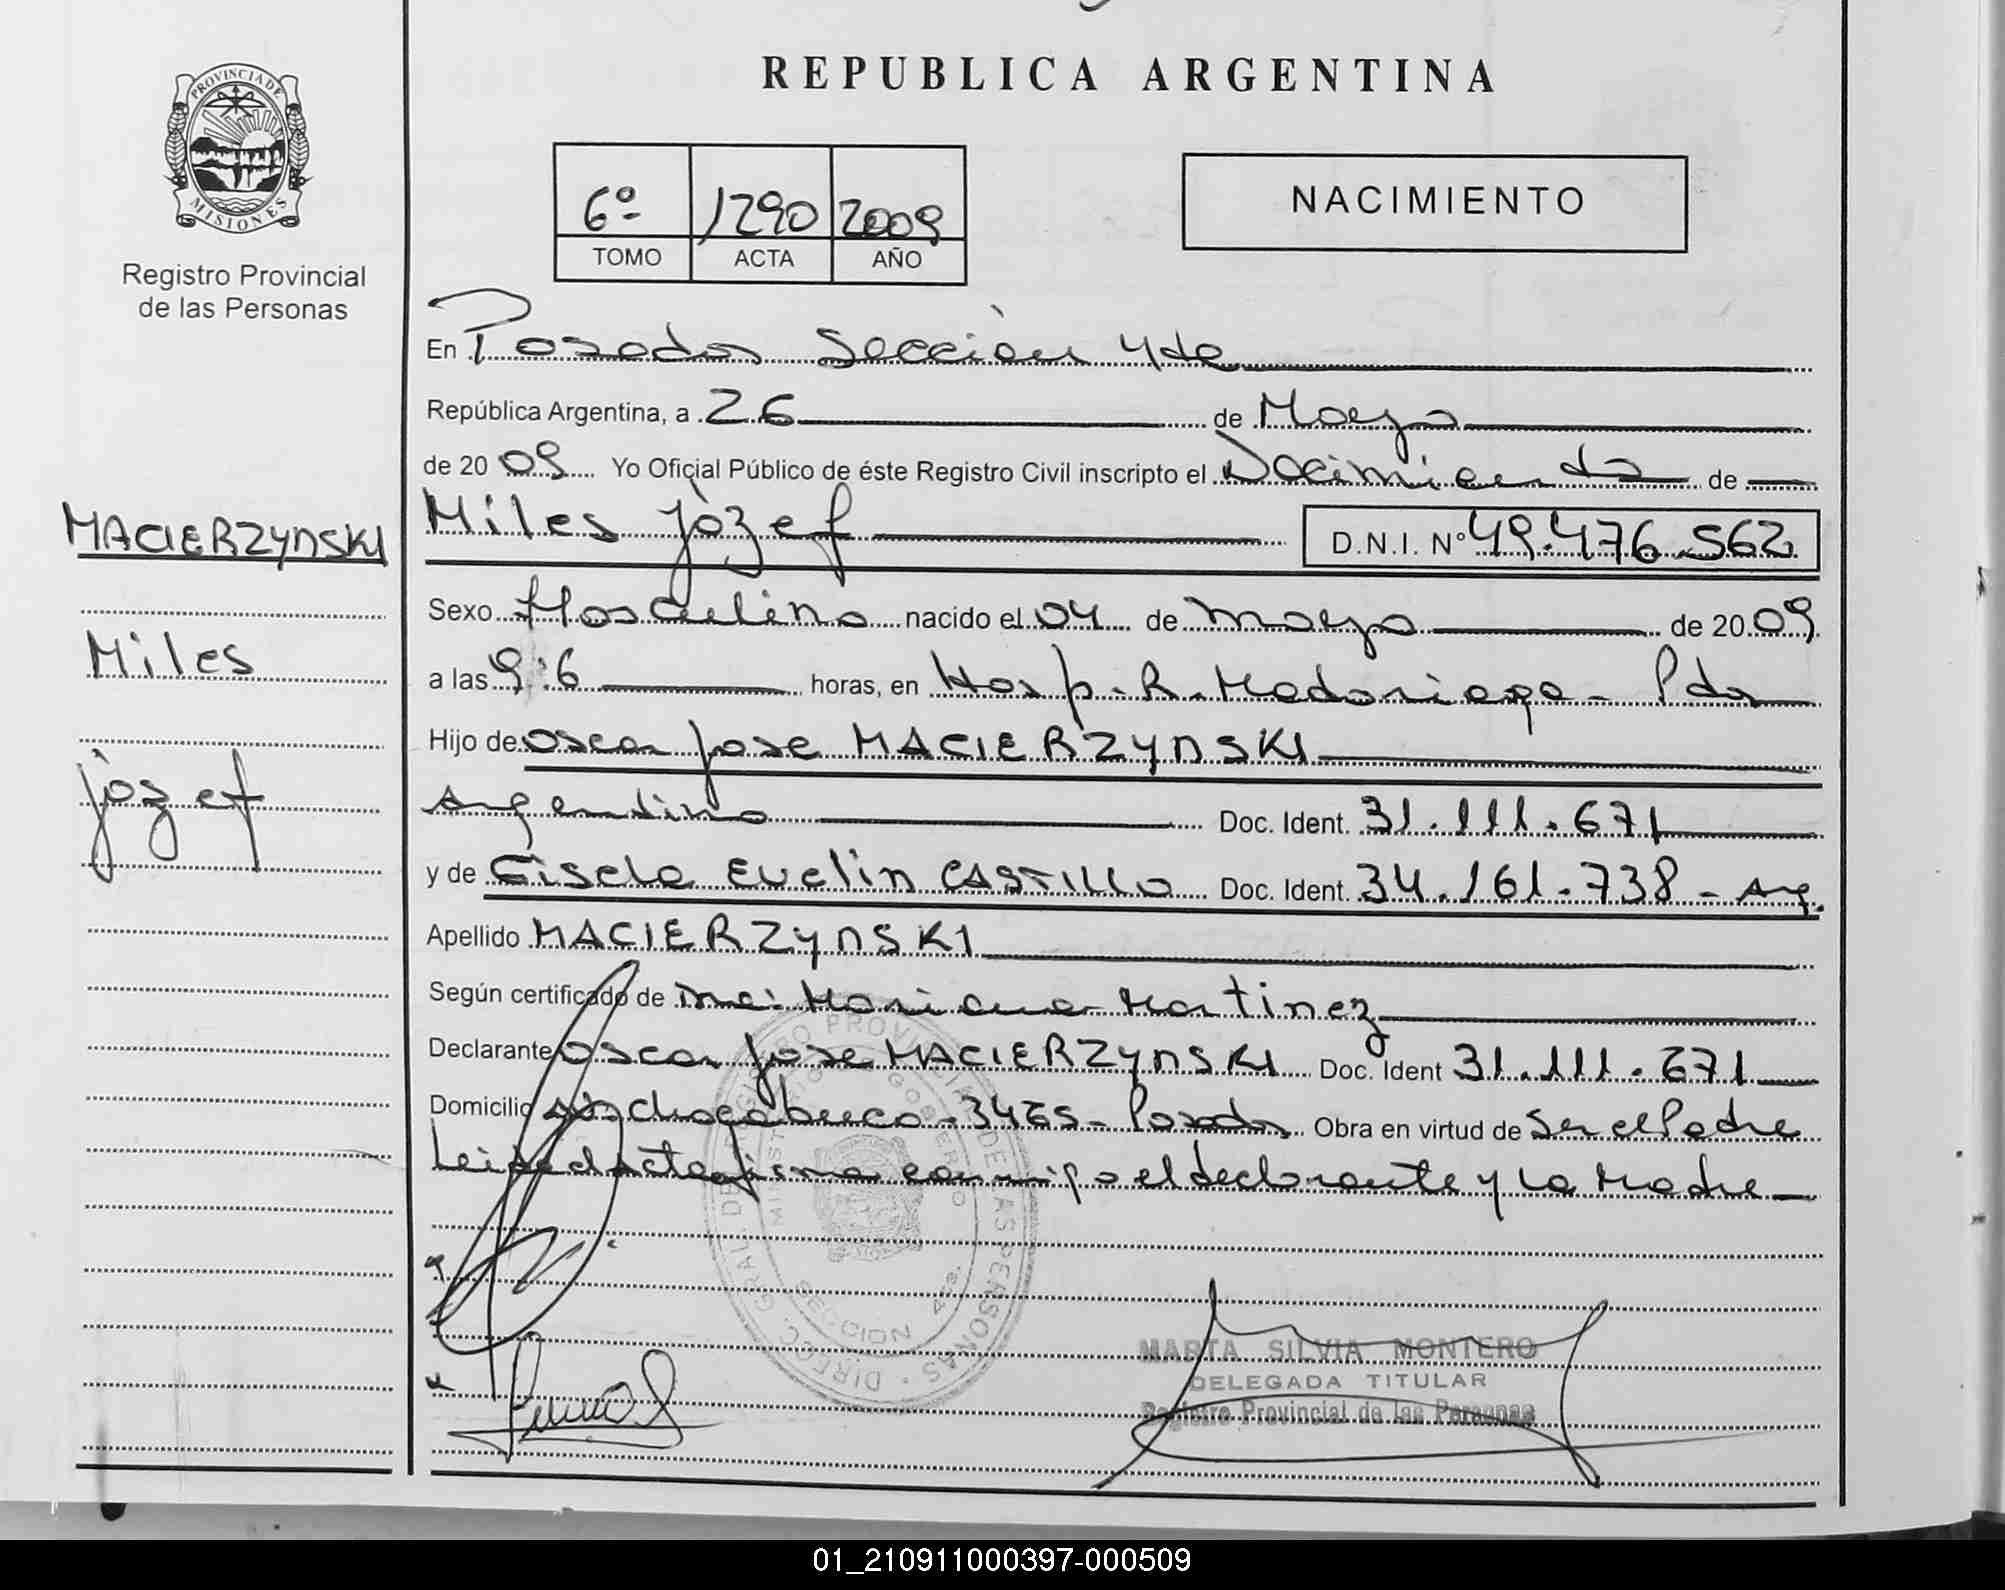 REPUBLICA ARGENTINA
PROVINCIA DE MISIONES
Registro Provincial
de las Personas
6º 1290 2009
TOMO ACTA AÑO
NACIMIENTO
En Posadas Sección 4ta
República Argentina, a 26 de Mayo
de 2009 Yo Oficial Público de éste Registro Civil inscripto el Nacimiento de
Miles Jòzef D.N.I. Nº 49.476.562
MACIERZYNSKI
Miles
Jòzef
Sexo Masculino nacido el 04 de mayo de 2009
a las 9:6 horas, en Hosp. R. Madariaga - Pdas
Hijo de Oscar Jose MACIERZYNSKI
Argentino Doc. Ident. 31.111.671
y de Gisela Evelin CASTILLO Doc. Ident. 34.161.738 - Arg.
Apellido MACIERZYNSKI
Según certificado de Mariana Martinez
Declarante Oscar Jose MACIERZYNSKI Doc. Ident 31.111.671
Domicilio chacabuco - 3465 - Posadas Obra en virtud de Ser el Padre
Leida el acta firma conmigo el declarante y La Madre
DIREC. GRAL. DE REGISTRO PROVINCIAL DE LAS PERSONAS
MINISTERIO DE GOBIERNO
SECCION 4ta.
MARTA SILVIA MONTERO
DELEGADA TITULAR
Registro Provincial de las Personas
01_210911000397-000509